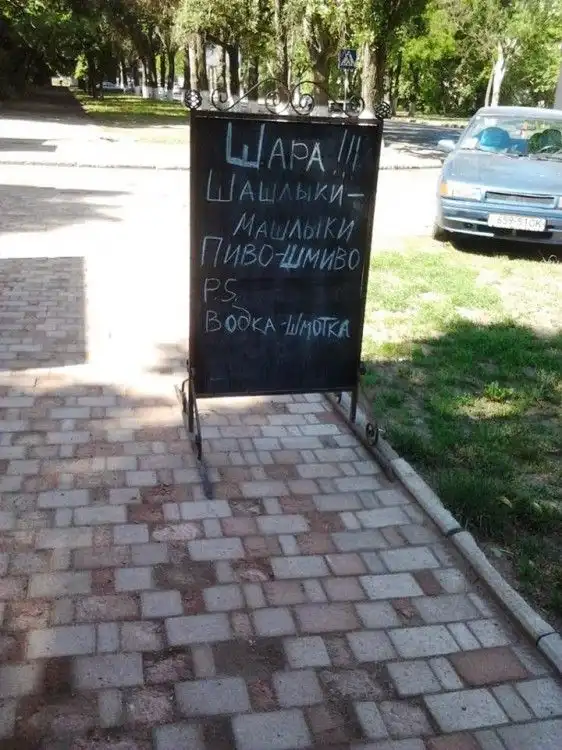 ШАРА!!!
ШАШЛЫКИ-
МАШЛЫКИ
ПИВО-ШМИВО
P.S.
ВОДКА-ШМОТКА